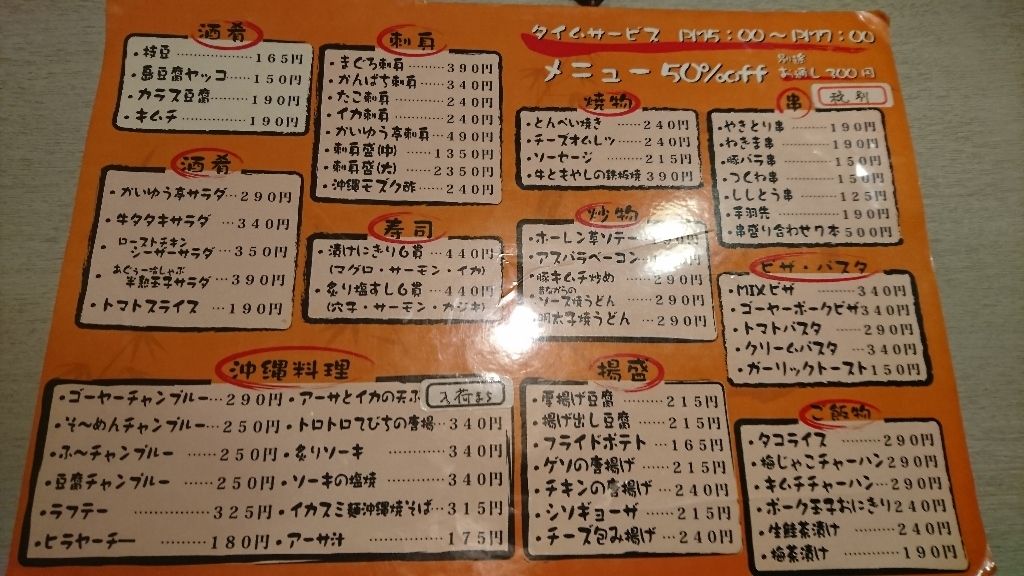 タイムサービス PM5:00～PM7:00
メニュー 50%off 別途 お通し300円
酒肴
・枝豆 165円
・島豆腐ヤッコ 150円
・カラス豆腐 190円
・キムチ 190円
刺身
・まぐろ刺身 390円
・かんぱち刺身 340円
・たこ刺身 240円
・イカ刺身 240円
・かいゆう亭刺身 490円
・刺身盛(中) 1350円
・刺身盛(大) 2350円
・沖縄モズク酢 240円
焼物
・とんぺい焼き 240円
・チーズオムレツ 240円
・ソーセージ 215円
・牛ともやしの鉄板焼 390円
串
・やきとり串 190円
・ねぎま串 190円
・豚バラ串 150円
・つくね串 150円
・ししとう串 125円
・手羽先 190円
・串盛り合わせ7本 500円
酒肴
・かいゆう亭サラダ 290円
・牛タタキサラダ 340円
・ローストチキン
シーザーサラダ 350円
・あぐーしゃぶ
半熟玉子サラダ 390円
・トマトスライス 190円
寿司
・漬けにぎり6貫 440円
(マグロ・サーモン・イカ)
・炙り塩すし6貫 440円
(穴子・サーモン・カジキ)
炒物
・ホーレン草ソテー 190円
・アスパラベーコン
・豚キムチ炒め 290円
・昔ながらの
ソース焼うどん 290円
・明太子焼うどん 290円
ピザ・パスタ
・MIXピザ 340円
・ゴーヤーポークピザ 340円
・トマトパスタ 290円
・クリームパスタ 340円
・ガーリックトースト 150円
沖縄料理
・ゴーヤーチャンプルー 290円
・そ～めんチャンプルー 250円
・ふ～チャンプルー 250円
・豆腐チャンプルー 250円
・ラフテー 325円
・ヒラヤーチー 180円
・アーサとイカの天ぷ 入荷まち
・トロトロてびちの唐揚 340円
・炙りソーキ 340円
・ソーキの塩焼 340円
・イカスミ麺沖縄焼そば 315円
・アーサ汁 175円
揚盛
・厚揚げ豆腐 215円
・揚げ出し豆腐 215円
・フライドポテト 165円
・ゲソの唐揚げ 215円
・チキンの唐揚げ 240円
・シソギョーザ 215円
・チーズ包み揚げ 240円
ご飯物
・タコライス 290円
・梅じゃこチャーハン 290円
・キムチチャーハン 290円
・ポーク玉子おにぎり 240円
・生鮭茶漬け 240円
・梅茶漬け 190円